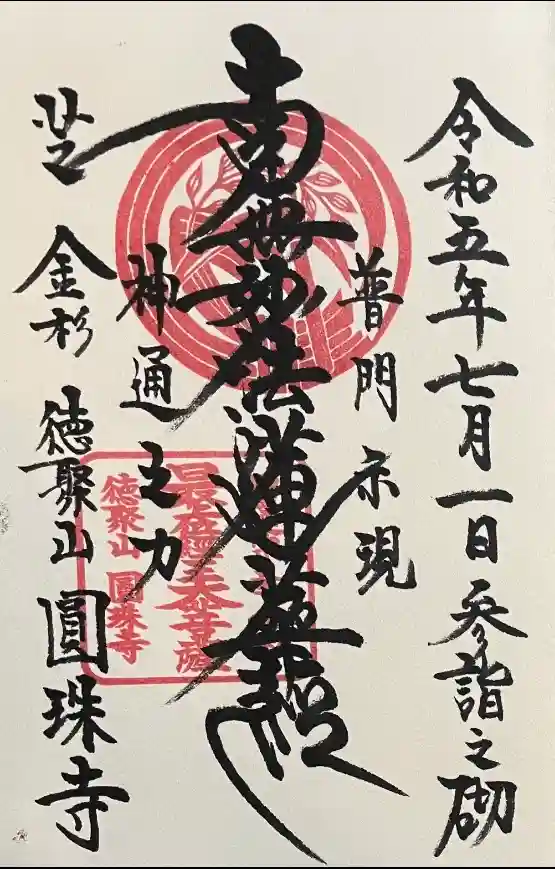 令和五年七月一日参詣之砌
普門示現
南無妙法蓮華経
神通之力
芝 金杉 徳聚山 圓珠寺
徳聚山 圓珠寺